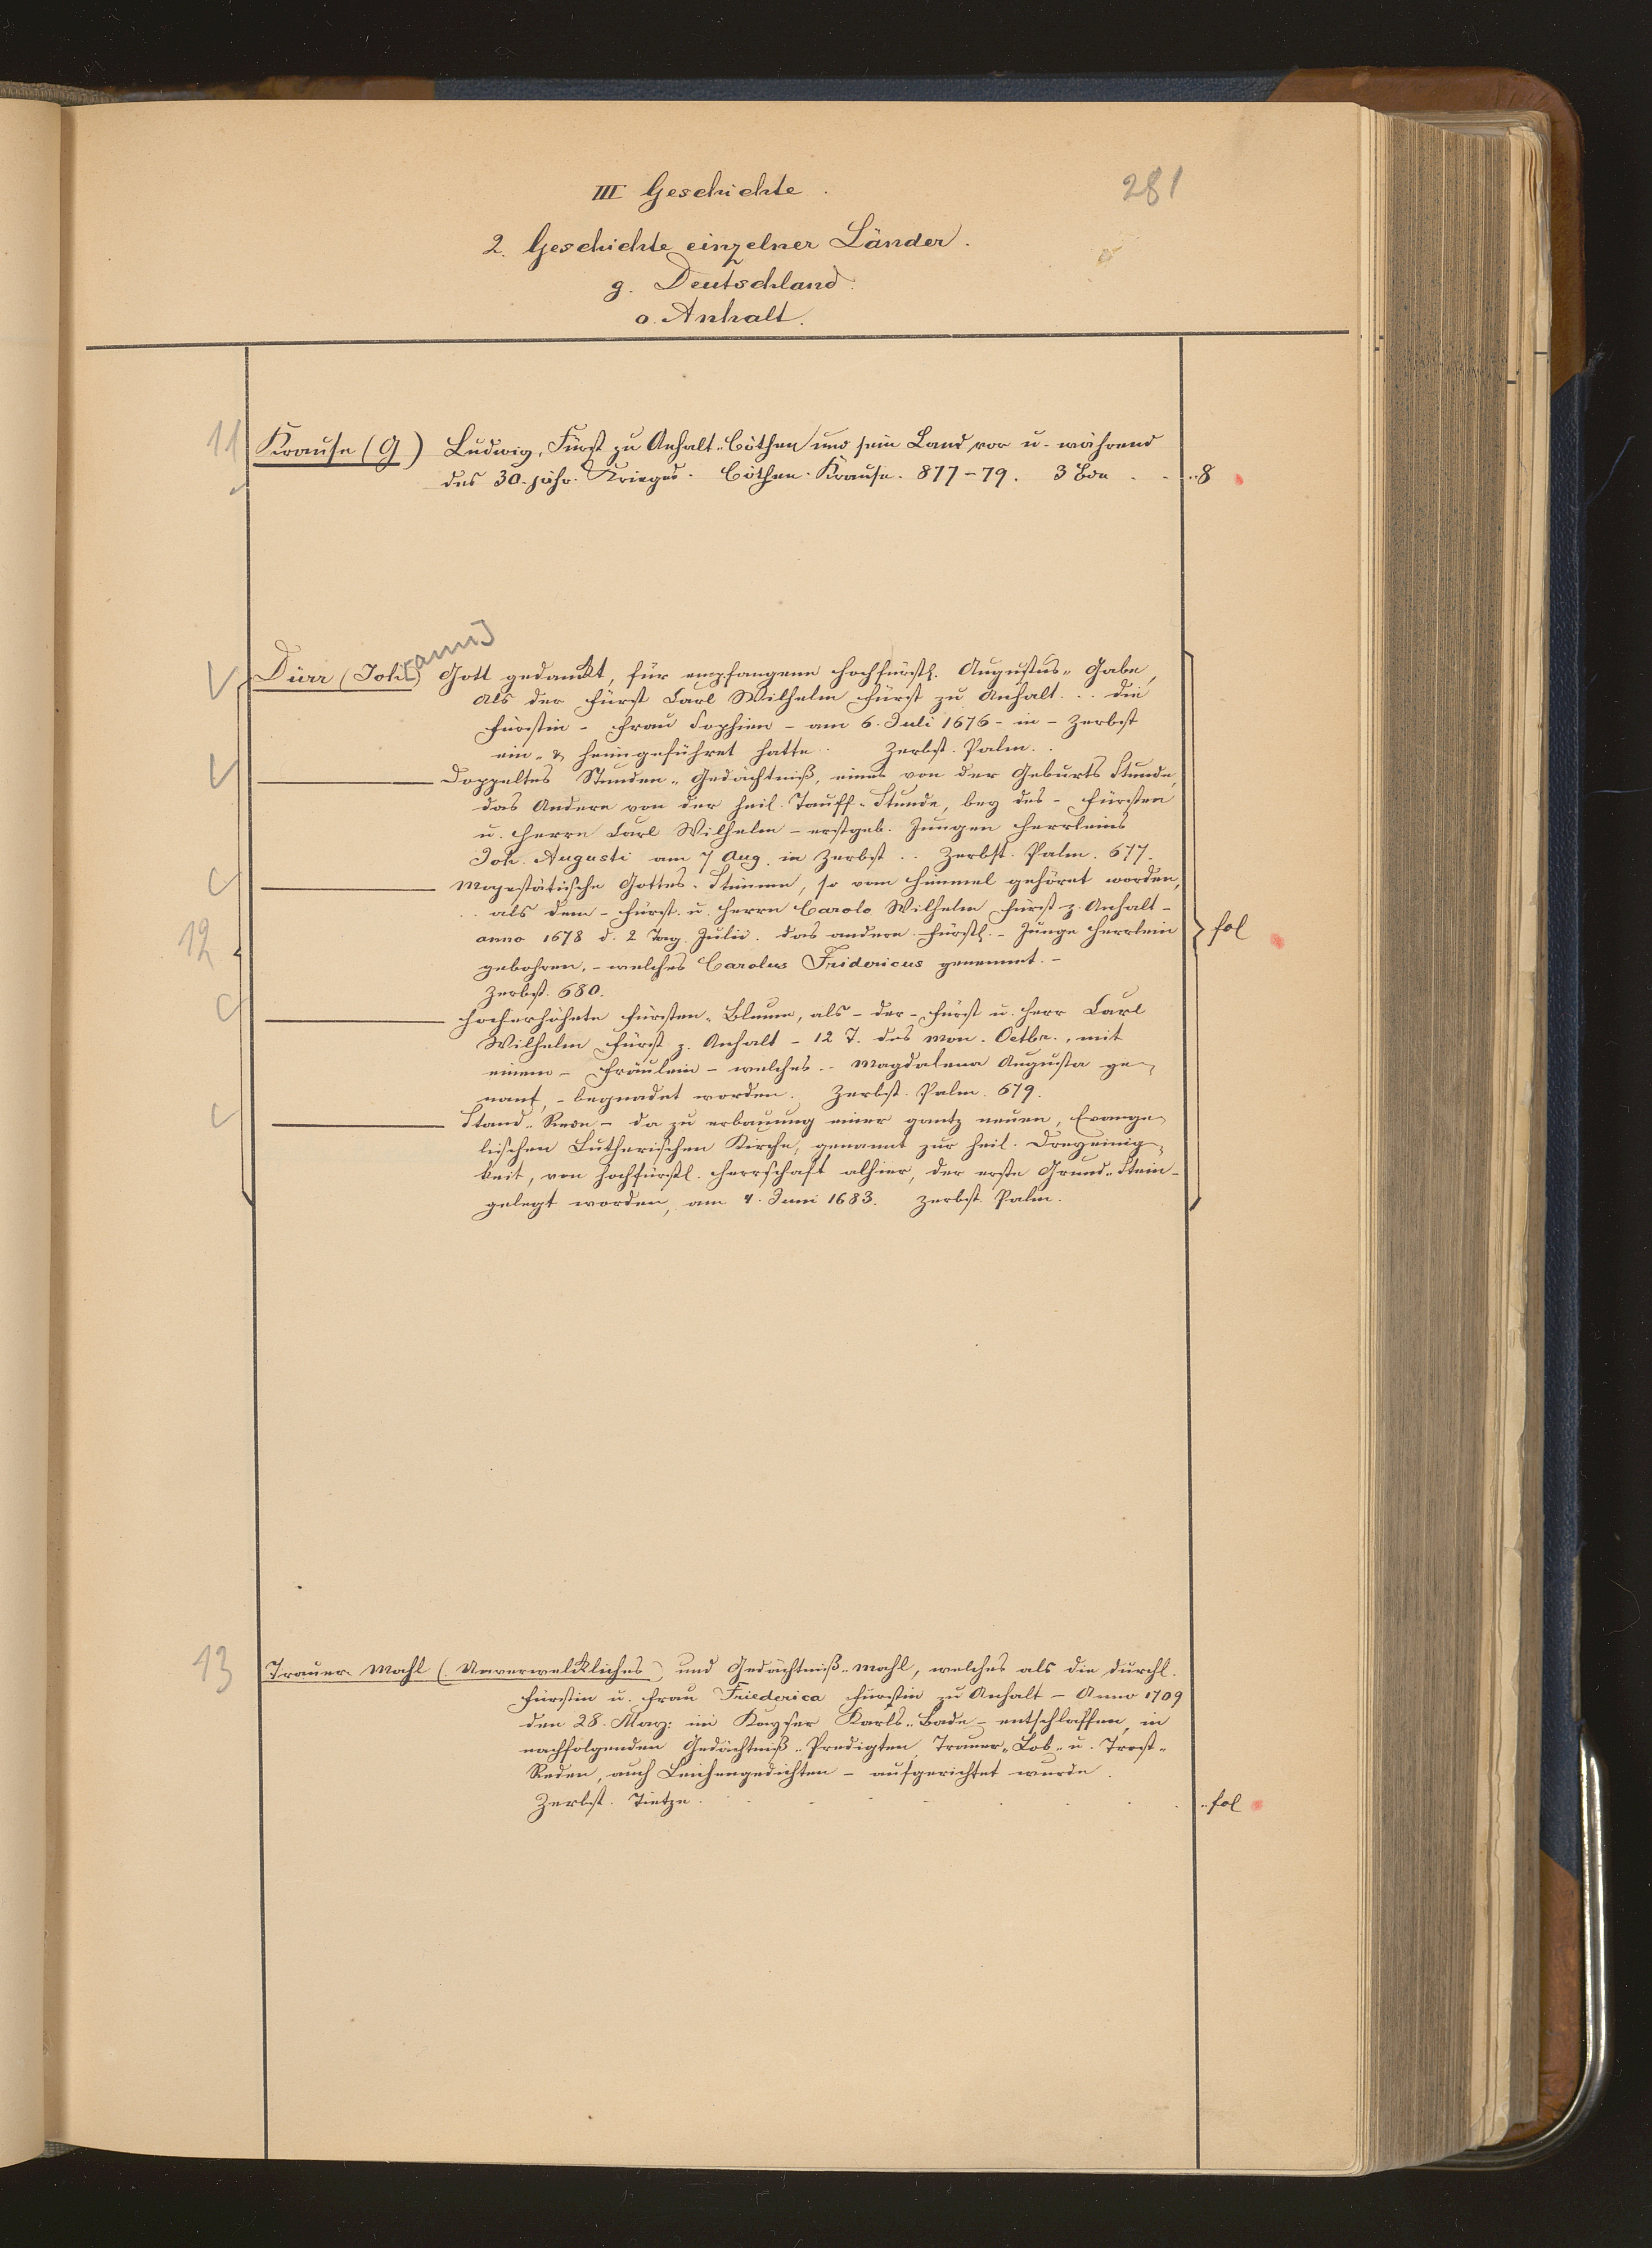 281
III Geschichte.
2. Geschichte einzelner Länder.
g. Deutschland.
o. Anhalt.
11 Krause (G) Ludwig, Fürst zu Anhalt-Cöthen und sein Land vor u. während
des 30.jähr. Krieges. Cöthen. Krause. 877-79. 3 Bde . . .. 8
Dürr (Joh[ann]) Gott gedankt, für empfangene hochfürstl. Augustus-Gabe,
als der Fürst Carl Wilhelm Fürst zu Anhalt... die
Fürstin - Frau Sophien - am 6. Juli 1676 - in - Zerbst
ein- & heimgeführet hatte. Zerbst. Palm..
——— Doppeltes Stunden-Gedächtniß, eines von der Geburts Stunde,
das Andere von der heil. Tauff-Stunde, bey des - Fürsten
u. Herrn Carl Wilhelm - erstgeb. Jungen Herrleins
Joh. Augusti am 7 Aug. in Zerbst .. Zerbst. Palm. 677.
——— Majestätische Gottes-Stimme, so vom Himmel gehöret worden,
.. als dem - Fürst. u. Herrn Carolo Wilhelm Fürst z. Anhalt -
12 anno 1678 d. 2 Tag. Julii. das andere. Fürstl. - Junge Herrlein fol
gebohren, - welches Carolus Fridericus genennet. -
Zerbst. 680.
——— Hocherhöhete Fürsten-Blume, als - der - Fürst u. Herr Carl
Wilhelm Fürst z. Anhalt - 12 T. des Mon. Octbr., mit
einem - Fräulein - welches .. Magdalena Augusta ge-
nant, - begnadet worden. Zerbst. Palm. 679.
——— Stand-Rede - da zu erbauung einer gantz neuen, Evange-
lischen Lutherischen Kirche, genannt zur heil. Dreyeinig-
keit, von hochfürstl. Herrschaft alhier, der erste Grund-Stein -
gelegt worden, am 4. Juni 1683. Zerbst. Palm.
13 Trauer Mahl (Unverwelkliches) und Gedächtniß-mahl, welches als die durchl.
Fürstin u. Frau Friederica Fürstin zu Anhalt - Anno 1709
den 28. May: im Kayser Karls-Bade - entschlaffen, in
nachfolgenden Gedächtniß-Predigten, Trauer-Lob- u. Trost-
Reden, auch Leichengedichten - aufgerichtet wurde.
Zerbst. Tietze. . . . . . . .. fol